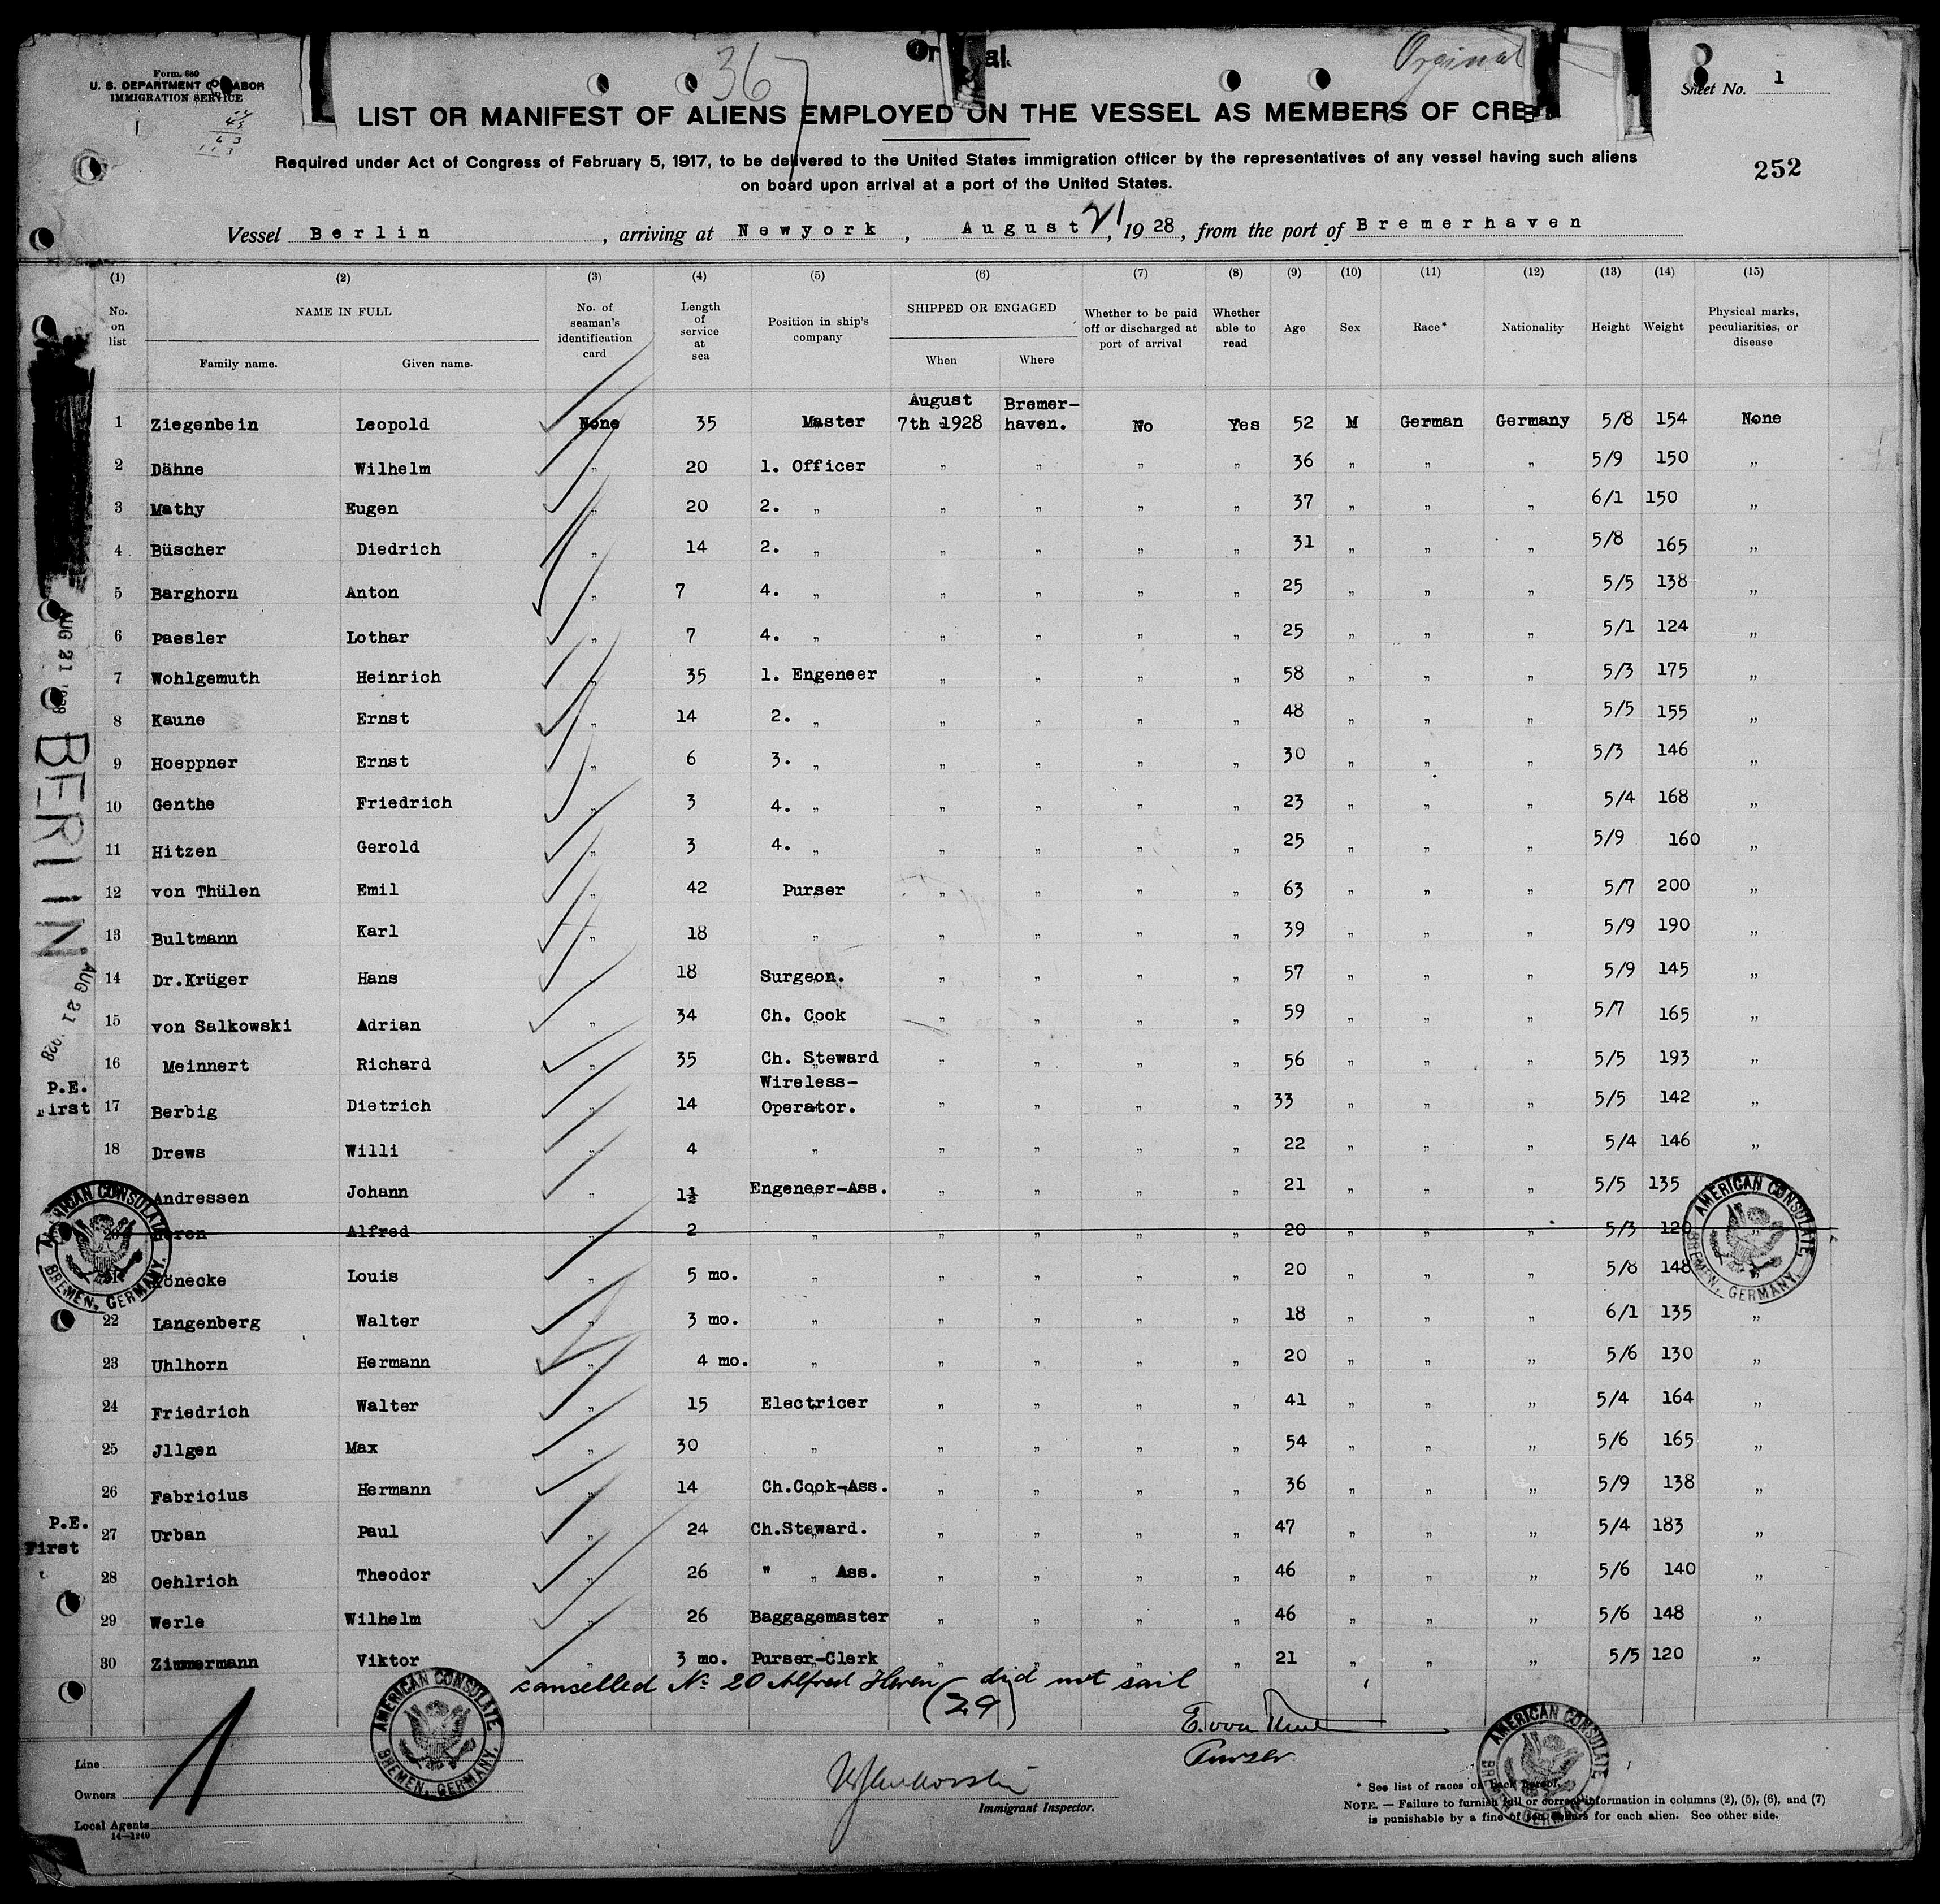 Form. 680
U. S. DEPARTMENT OF LABOR
IMMIGRATION SERVICE
367
Orginal
Sheet No. 1
LIST OR MANIFEST OF ALIENS EMPLOYED ON THE VESSEL AS MEMBERS OF CRE
Required under Act of Congress of February 5, 1917, to be delivered to the United States immigration officer by the representatives of any vessel having such aliens
on board upon arrival at a port of the United States.
252
Vessel Berlin, arriving at Newyork, August 21, 1928, from the port of Bremerhaven
(1) (2) (3) (4) (5) (6) (7) (8) (9) (10) (11) (12) (13) (14) (15)
No. on list NAME IN FULL Family name. Given name. No. of seaman's identification card Length of service at sea Position in ship's company SHIPPED OR ENGAGED When Where Whether to be paid off or discharged at port of arrival Whether able to read Age Sex Race* Nationality Height Weight Physical marks, peculiarities, or disease
1 Ziegenbein Leopold None 35 Master August 7th 1928 Bremer-haven. No Yes 52 M German Germany 5/8 154 None
2 Dähne Wilhelm „ 20 1. Officer „ „ „ „ 36 „ „ „ 5/9 150 „
3 Mathy Eugen „ 20 2. „ „ „ „ „ 37 „ „ „ 6/1 150 „
4 Büscher Diedrich „ 14 2. „ „ „ „ „ 31 „ „ „ 5/8 165 „
5 Barghorn Anton „ 7 4. „ „ „ „ „ 25 „ „ „ 5/5 138 „
6 Paesler Lothar „ 7 4. „ „ „ „ „ 25 „ „ „ 5/1 124 „
7 Wohlgemuth Heinrich „ 35 1. Engeneer „ „ „ „ 58 „ „ „ 5/3 175 „
8 Kaune Ernst „ 14 2. „ „ „ „ „ 48 „ „ „ 5/5 155 „
9 Hoeppner Ernst „ 6 3. „ „ „ „ „ 30 „ „ „ 5/3 146 „
10 Genthe Friedrich „ 3 4. „ „ „ „ „ 23 „ „ „ 5/4 168 „
11 Hitzen Gerold „ 3 4. „ „ „ „ „ 25 „ „ „ 5/9 160 „
12 von Thülen Emil „ 42 Purser „ „ „ „ 63 „ „ „ 5/7 200 „
13 Bultmann Karl „ 18 „ „ „ „ „ 39 „ „ „ 5/9 190 „
14 Dr.Krüger Hans „ 18 Surgeon. „ „ „ „ 57 „ „ „ 5/9 145 „
15 von Salkowski Adrian „ 34 Ch. Cook „ „ „ „ 59 „ „ „ 5/7 165 „
16 Meinnert Richard „ 35 Ch. Steward „ „ „ „ 56 „ „ „ 5/5 193 „
17 Berbig Dietrich „ 14 Wireless-Operator. „ „ „ „ 33 „ „ „ 5/5 142 „
18 Drews Willi „ 4 „ „ „ „ „ 22 „ „ „ 5/4 146 „
Andressen Johann „ 1½ Engeneer-Ass. „ „ „ „ 21 „ „ „ 5/5 135
20 Heren Alfred „ 2 „ „ „ „ „ 20 „ „ „ 5/3 120
Könecke Louis „ 5 mo. „ „ „ „ „ 20 „ „ „ 5/8 148
22 Langenberg Walter „ 3 mo. „ „ „ „ „ 18 „ „ „ 6/1 135 „
23 Uhlhorn Hermann „ 4 mo. „ „ „ „ „ 20 „ „ „ 5/6 130 „
24 Friedrich Walter „ 15 Electricer „ „ „ „ 41 „ „ „ 5/4 164 „
25 Jllgen Max „ 30 „ „ „ „ „ 54 „ „ „ 5/6 165 „
26 Fabricius Hermann „ 14 Ch.Cook-Ass. „ „ „ „ 36 „ „ „ 5/9 138 „
27 Urban Paul „ 24 Ch.Steward. „ „ „ „ 47 „ „ „ 5/4 183 „
28 Oehlrich Theodor „ 26 " „ Ass. „ „ „ „ 46 „ „ „ 5/6 140 „
29 Werle Wilhelm „ 26 Baggagemaster „ „ „ „ 46 „ „ „ 5/6 148 „
30 Zimmermann Viktor „ 3 mo. Purser-Clerk „ „ „ „ 21 „ „ „ 5/5 120 „
AUG 21 1928
BERLIN
AUG 21 1928
P.E.
First
P.E.
First
AMERICAN CONSULATE
BREMEN, GERMANY.
AMERICAN CONSULATE
BREMEN, GERMANY.
cancelled No 20 Alfred Heren did not sail
(29)
E. von Thülen
Purser
AMERICAN CONSULATE
BREMEN, GERMANY.
AMERICAN CONSULATE
BREMEN, GERMANY.
Line
Owners
Local Agents
14—1240
Immigrant Inspector.
* See list of races on back hereof.
NOTE. — Failure to furnish full or correct information in columns (2), (5), (6), and (7)
is punishable by a fine of ten dollars for each alien. See other side.